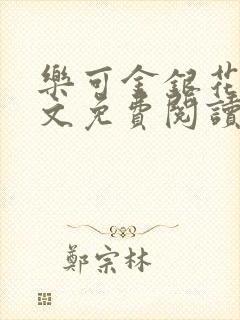 樂可金銀花
文免費閱讀
鄭宗林